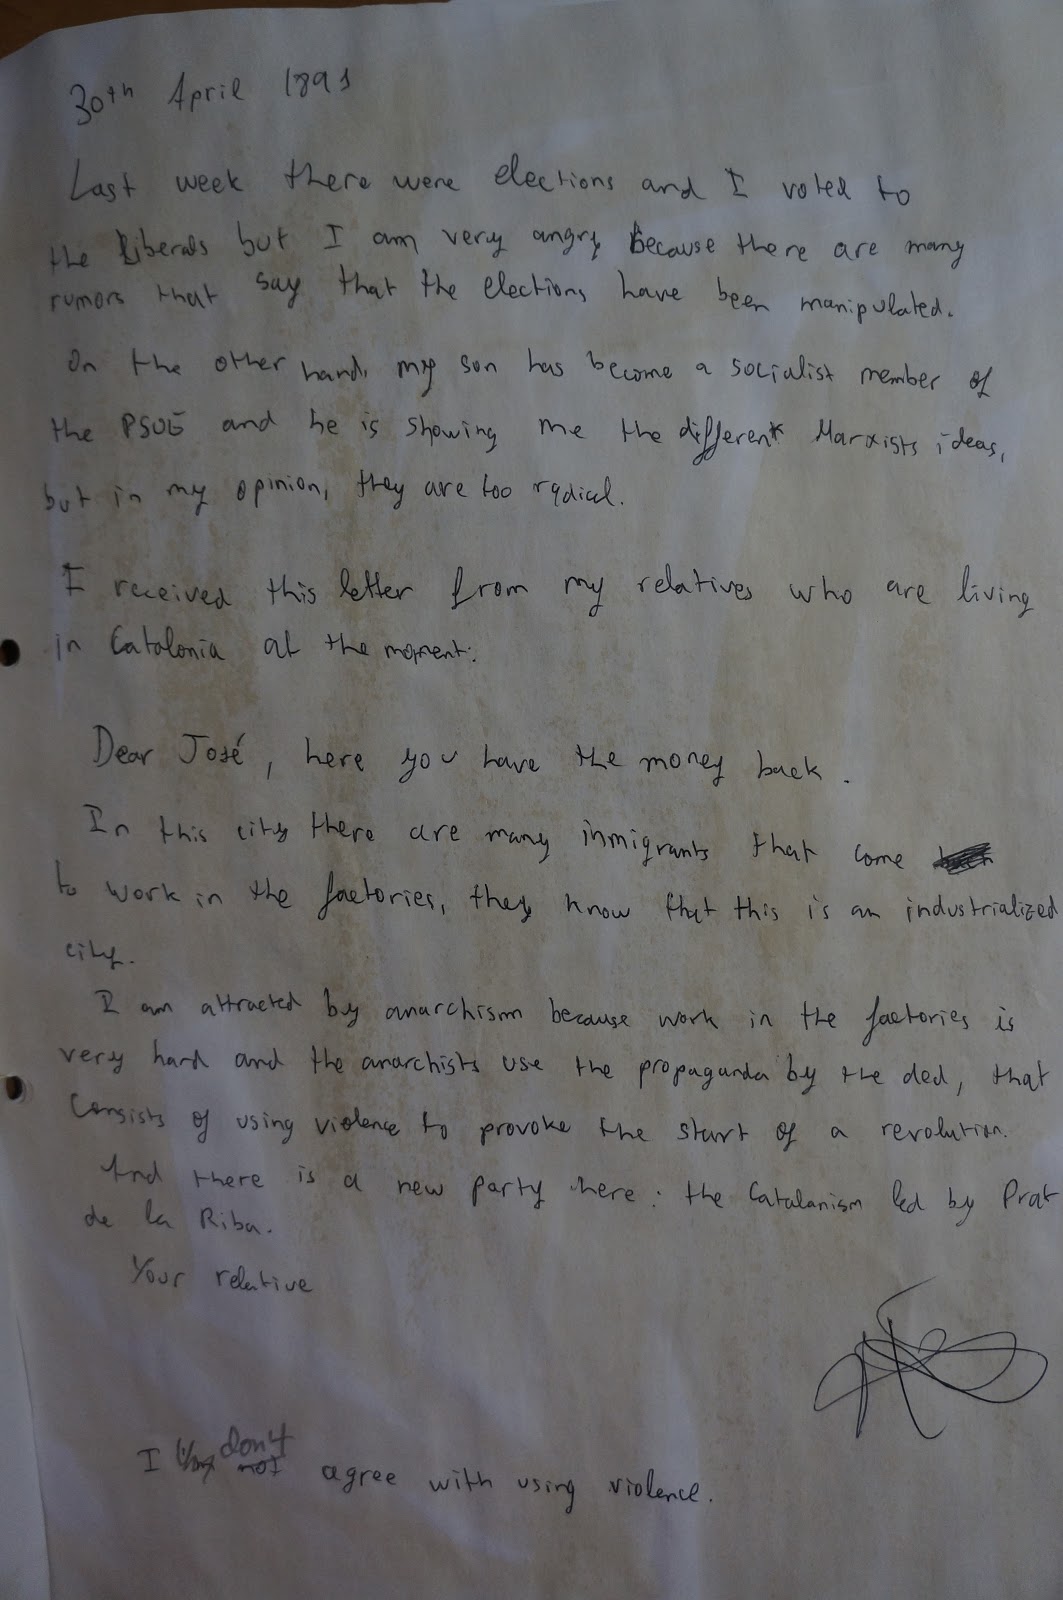 30th April 1891
Last week there were elections and I voted to
the Liberals but I am very angry because there are many
rumors that say that the elections have been manipulated.
On the other hand, my son has become a socialist member of
the PSOE and he is showing me the different Marxists ideas,
but in my opinion, they are too radical.
I received this letter from my relatives who are living
in Catalonia at the moment:
Dear José, here you have the money back.
In this city there are many inmigrants that come
to work in the factories, they know that this is an industrialized
city.
I am attracted by anarchism because work in the factories is
very hard and the anarchists use the propaganda by the ded, that
consists of using violence to provoke the start of a revolution.
And there is a new party here: the Catalanism led by Prat
de la Riba.
Your relative
I don't agree with using violence.